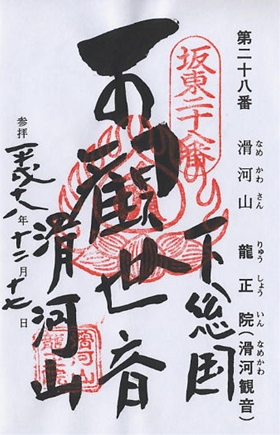 第二十八番　滑河山　龍正院(滑河観音)
なめ かわ さん　りゅう しょう いん　なめかわ
坂東二十八番
下総国
觀世音
滑河山
参拝　平成十八年十二月十七日